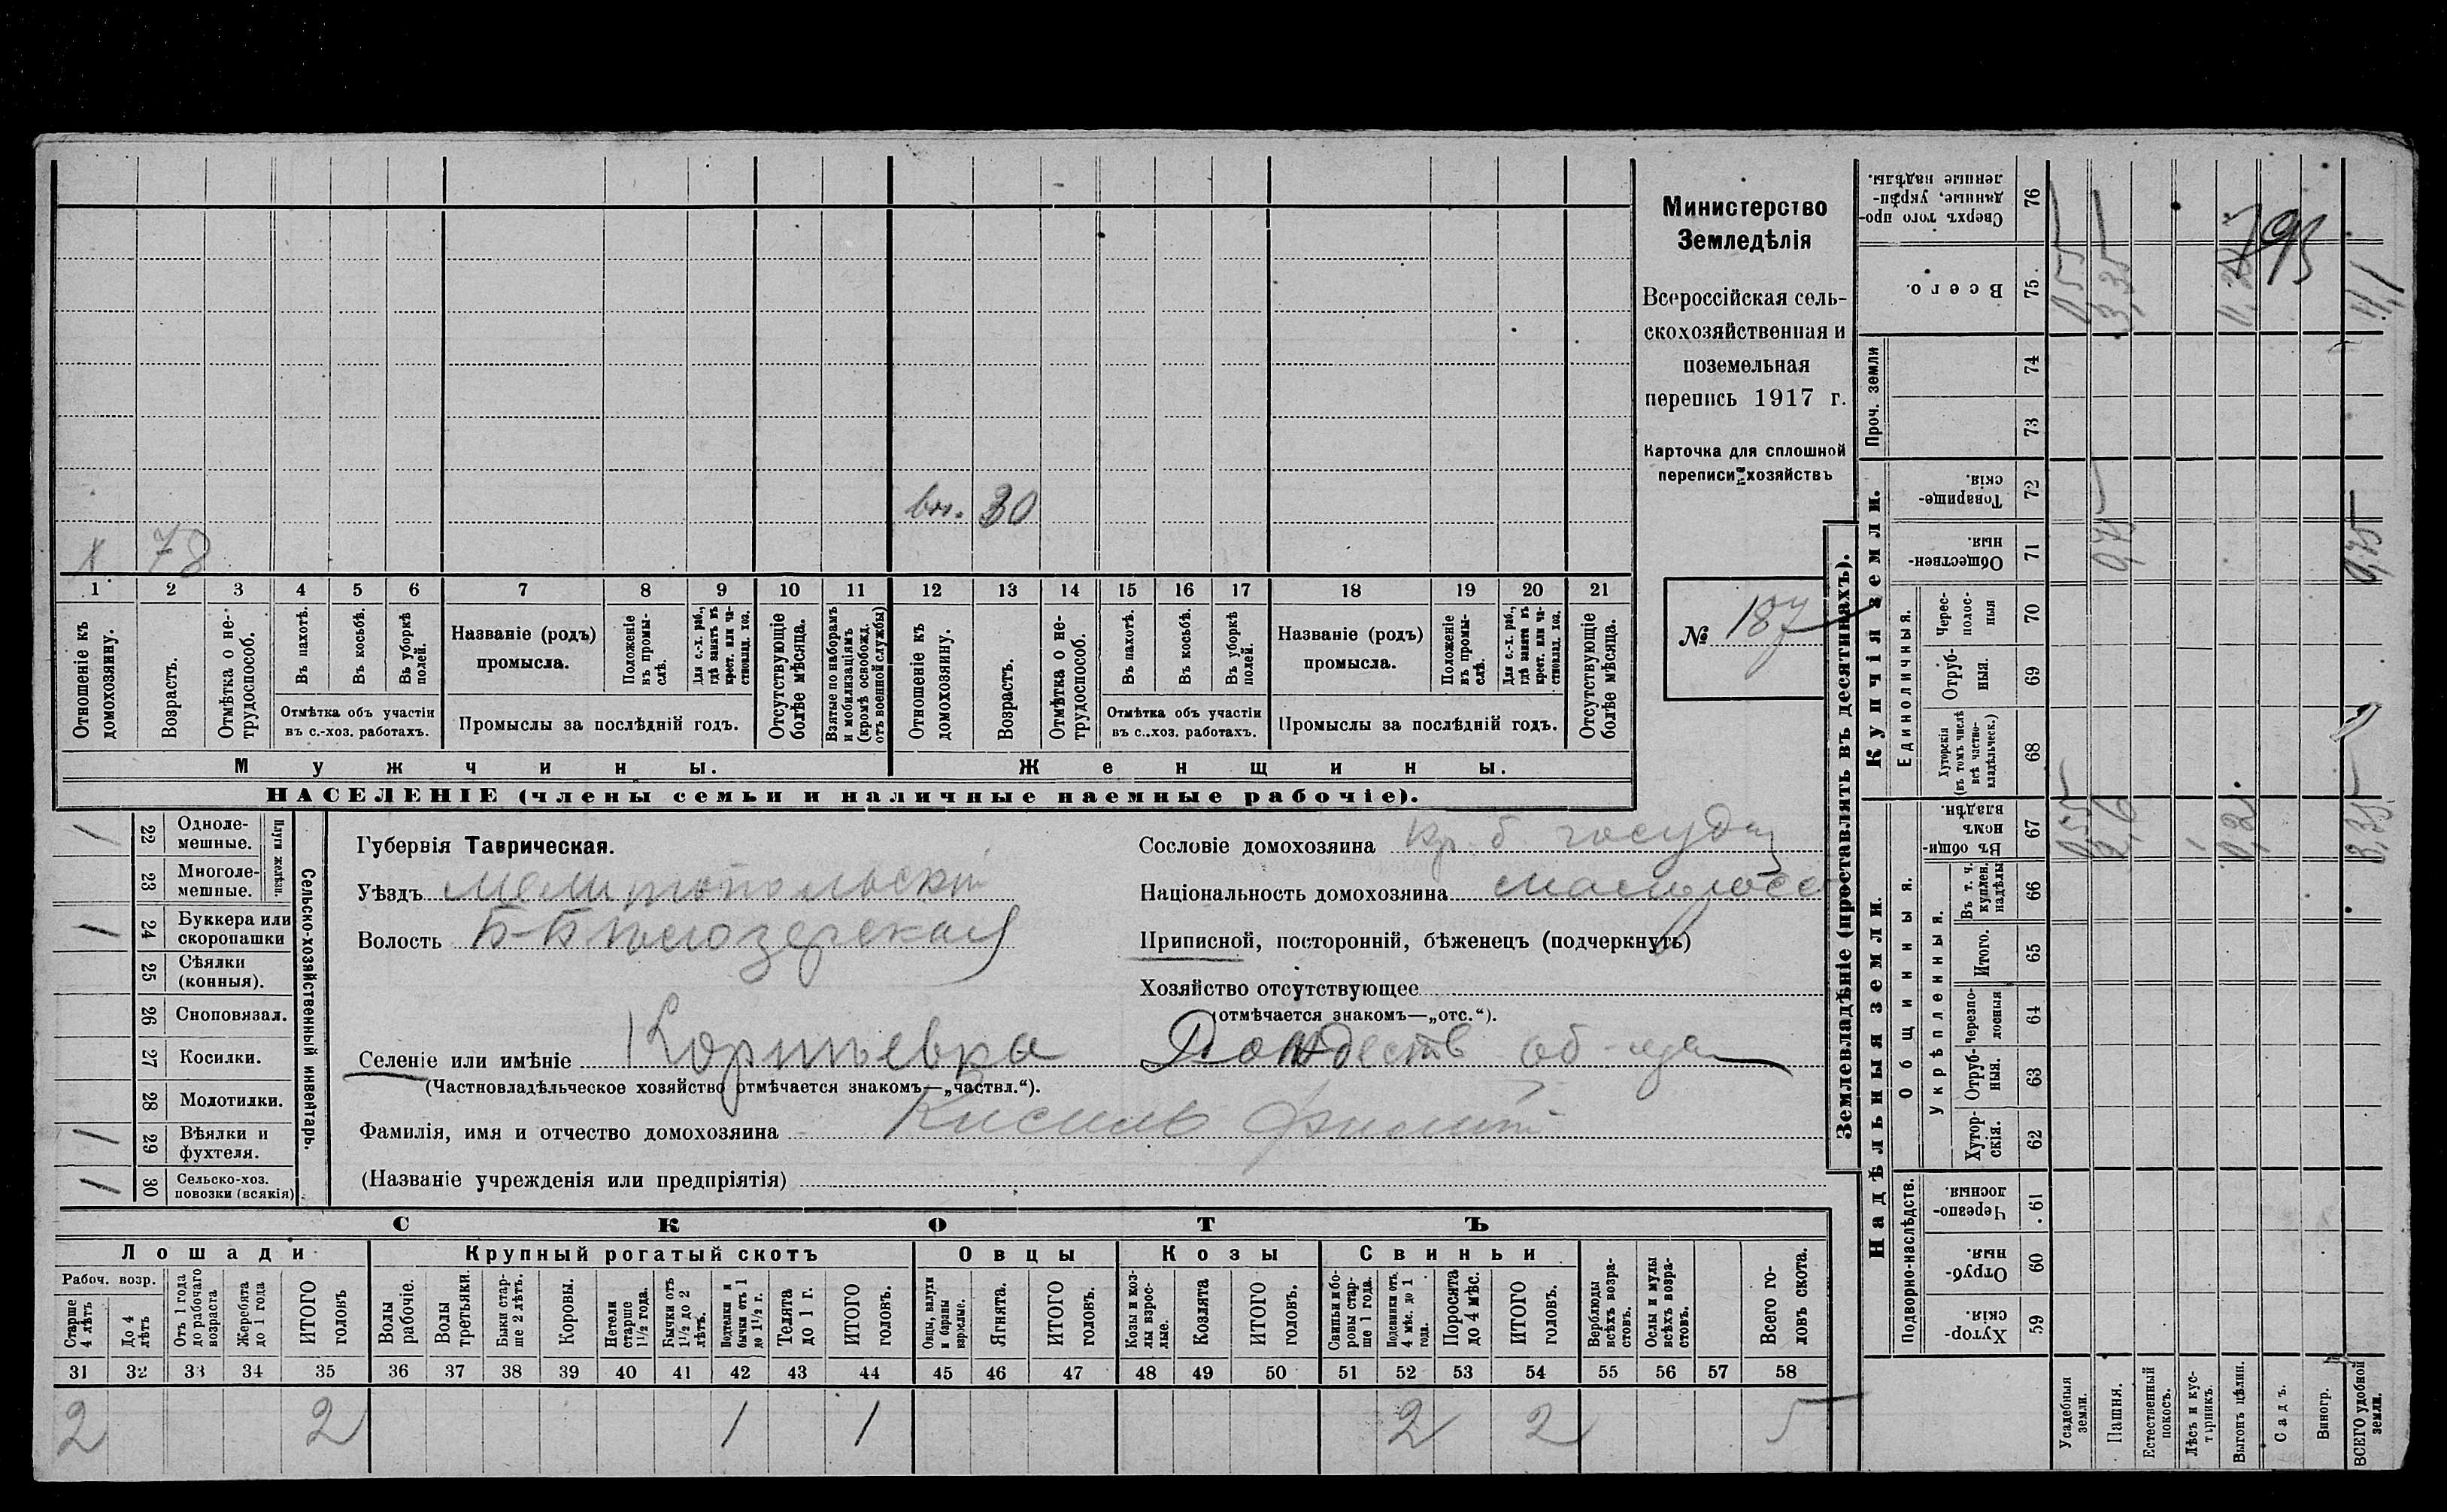 Министерство
Земледѣлія
Всероссійская сель-
скохозяйственная и
поземельная
перепись 1917 г.
Карточка для сплошной
переписи хозяйствъ
№ 187
вн. 30
78
1 2 3 4 5 6 7 8 9 10 11 12 13 14 15 16 17 18 19 20 21
Отношеніе къ домохозяину.
Возрастъ.
Отмѣтка о не-трудоспособ.
Въ пахотѣ.
Въ косьбѣ.
Въ уборкѣ полей.
Отмѣтка объ участіи
въ с.-хоз. работахъ.
Названіе (родъ)
промысла.
Положеніе въ промы-слѣ.
Для с.-х. раб., гдѣ занятъ въ крест. или ча-стновлад. хоз.
Промыслы за послѣдній годъ.
Отсутствующіе болѣе мѣсяца.
Взятые по наборамъ и мобилизаціямъ (кромѣ освобожд. отъ военной службы)
Отношеніе къ домохозяину.
Возрастъ.
Отмѣтка о не-трудоспособ.
Въ пахотѣ.
Въ косьбѣ.
Въ уборкѣ полей.
Отмѣтка объ участіи
въ с.-хоз. работахъ.
Названіе (родъ)
промысла.
Положеніе въ промы-слѣ.
Для с.-х. раб., гдѣ занята въ крест. или ча-стновлад. хоз.
Промыслы за послѣдній годъ.
Отсутствующіе болѣе мѣсяца.
Мужчины.
Женщины.
НАСЕЛЕНІЕ (члены семьи и наличные наемные рабочіе).
Сельско-хозяйственный инвентарь.
Плуги желѣзн.
1 22 Одноле-мешные.
23 Многоле-мешные.
1 24 Буккера или скоропашки
25 Сѣялки (конныя).
26 Сноповязал.
27 Косилки.
28 Молотилки.
1 29 Вѣялки и фухтеля.
1 30 Сельско-хоз. повозки (всякія)
Губернія Таврическая.
Уѣздъ Мелитопольскій
Волость Б-Бѣлозерская
Селеніе или имѣніе
(Частновладѣльческое хозяйство отмѣчается знакомъ—„частвл.“).
Фамилія, имя и отчество домохозяина
(Названіе учрежденія или предпріятія)
Сословіе домохозяина кр. б. государ
Національность домохозяина малоросс
Приписной, посторонній, бѣженецъ (подчеркнуть)
Хозяйство отсутствующее
(отмѣчается знакомъ—„отс.“).
СКОТЪ
Лошади Крупный рогатый скотъ Овцы Козы Свиньи
Рабоч. возр.
Старше 4 лѣтъ
До 4 лѣтъ
Отъ 1 года до рабочаго возраста
Жеребята до 1 года
ИТОГО головъ
Волы рабочіе.
Волы третьяки.
Быки стар-ше 2 лѣтъ.
Коровы.
Нетели старше 1½ года.
Бычки отъ 1½ до 2 лѣтъ.
Подтелки и бычки отъ 1 до 1½ г.
Телята до 1 г.
ИТОГО головъ.
Овцы, валухи и бараны взрослые.
Ягнята.
ИТОГО головъ.
Козы и коз-лы взрос-лые.
Козлята
ИТОГО головъ.
Свиньи и бо-ровы стар-ше 1 года.
Подсвинки отъ 4 мѣс. до 1 года.
Поросята до 4 мѣс.
ИТОГО головъ.
Верблюды всѣхъ возра-стовъ.
Ослы и мулы всѣхъ возра-стовъ.
Всего го-ловъ скота.
31 32 33 34 35 36 37 38 39 40 41 42 43 44 45 46 47 48 49 50 51 52 53 54 55 56 57 58
2 2 1 1 2 2 5
Землевладѣніе (проставлять въ десятинахъ).
Надѣльныя земли.
Купчія земли.
Проч. земли
Подворно-наслѣдств.
Общинныя.
Укрѣпленныя.
Единоличныя.
Хутор-скія. 59
Отруб-ныя 60
Черезпо-лосныя. 61
Хутор-скія. 62
Отруб-ныя. 63
Черезпо-лосныя 64
Итого. 65
Въ т. ч. куплен. надѣлы 66
Въ общи-номъ владѣн. 67
Хуторскія (въ томъ числѣ всѣ частно-владѣльческ.) 68
Отруб-ныя. 69
Черес-полос-ныя 70
Обществен-ныя. 71
Товарище-скія. 72
73
74
Всего. 75
Сверхъ того про-данные, укрѣп-ленные надѣлы. 76
Усадебныя земли. 0,55 0,55
Пашня. 2,6 0,75 3,35
Естественный покосъ.
Лѣсъ и кус-тарникъ.
Выгонъ цѣлин. 0,2 0,2
Садъ.
Виногр.
ВСЕГО удобной земли. 3,35 0,75 4,1